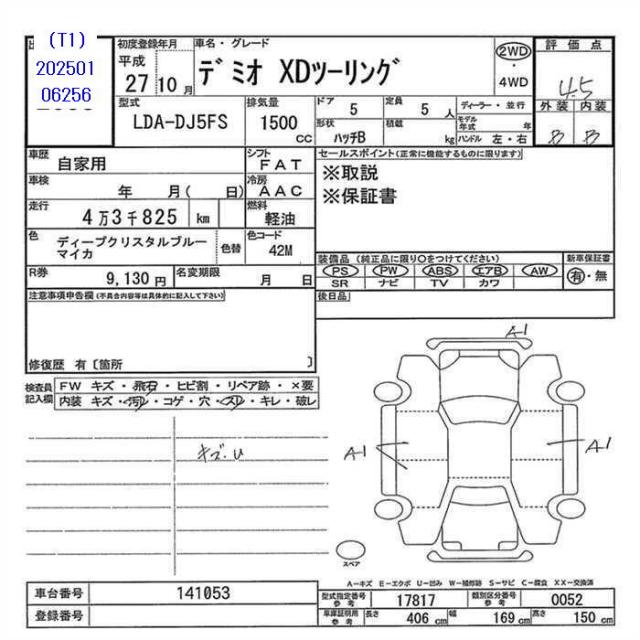 (T1)
202501
06256
初度登録年月
車名・グレード
平成
27
10
月
デミオ XDツーリング
2WD
・
4WD
評価点
4.5
外装
内装
B
B
型式
LDA-DJ5FS
排気量
1500
CC
ドア
5
定員
5
人
ディーラー・並行
形状
ハッチB
積載
kg
モデル年式
年
ハンドル 左・右
車歴
自家用
シフト
FAT
セールスポイント(正常に機能するものに限ります)
※取説
※保証書
車検
年 月( 日)
冷房
AAC
走行
4万3千825
km
燃料
軽油
色
ディープクリスタルブルー
マイカ
色替
色コード
42M
装備品(純正品に限り○をつけてください)
新車保証書
PS
PW
ABS
エアB
AW
SR
ナビ
TV
カワ
有・無
R券
9,130円
名変期限
月 日
後日品
注意事項申告欄(不具合内容等は具体的に記入して下さい)
修復歴 有〔箇所 〕
検査員
記入欄
FW キズ・飛石・ヒビ割・リペア跡・×要
内装 キズ・汚レ・コゲ・穴・スリ・キレ・破レ
キズ.U
A-1
A-1
A-1
スペア
A-キズ E-エクボ U-凹み W-補修跡 S-サビ C-腐食 XX-交換済
車台番号
141053
登録番号
型式指定番号
参考
17817
類別区分番号
参考
0052
車庫証明用
参考
長さ
406 cm
幅
169 cm
高さ
150 cm